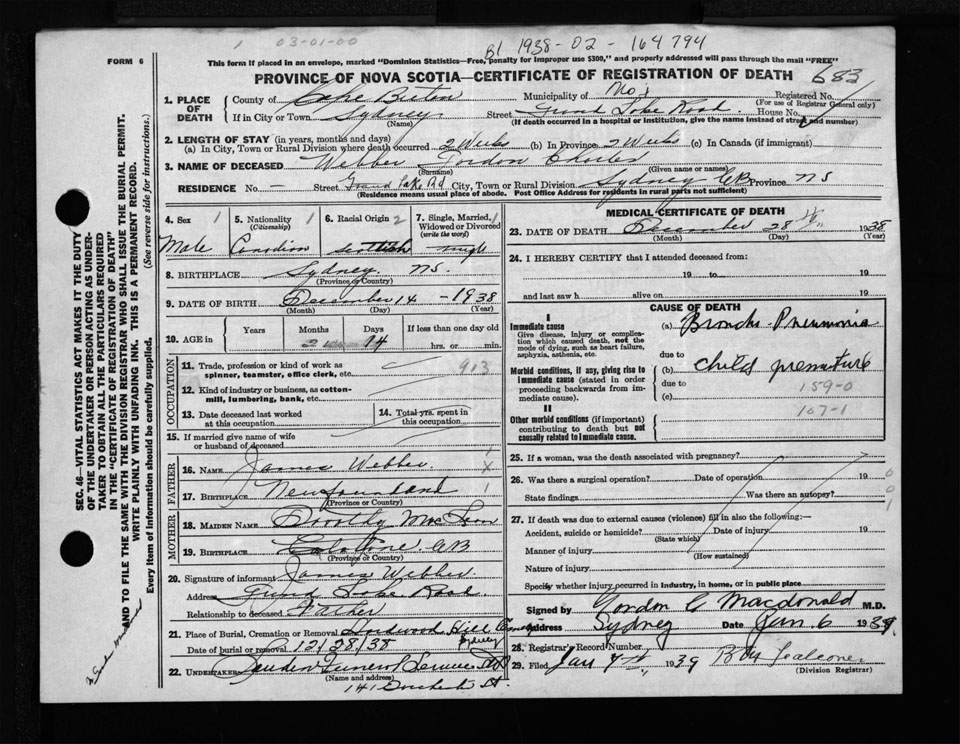 1 03-01-00
B1 1938-02-164794
FORM 6
This form if placed in an envelope, marked "Dominion Statistics—Free, (penalty for improper use $300," and properly addressed will pass through the mail "FREE"
PROVINCE OF NOVA SCOTIA—CERTIFICATE OF REGISTRATION OF DEATH 683
1. PLACE OF DEATH
County of Cape Breton Municipality of No 1 Registered No.
(For use of Registrar General only)
If in City or Town Sydney Street Grand Lake Road House No.
(Name) (If death occurred in a hospital or institution, give the name instead of street and number)
2. LENGTH OF STAY (in years, months and days)
(a) In City, Town or Rural Division where death occurred 2 Weeks (b) In Province 2 Weeks (c) In Canada (if immigrant)
3. NAME OF DECEASED Webber Gordon Charles
(Surname) (Given name or names)
RESIDENCE No. — Street Grand Lake Rd City, Town or Rural Division Sydney CB Province NS
(Residence means usual place of abode. Post Office Address for residents in rural parts not sufficient)
4. Sex 1 5. Nationality 1 (Citizenship) 6. Racial Origin 2 7. Single, Married, 1 Widowed or Divorced (write the word)
Male Canadian Scottish single
8. BIRTHPLACE Sydney NS.
(Province or Country)
9. DATE OF BIRTH December 14 - 1938
(Month) (Day) (Year)
10. AGE in Years Months Days If less than one day old
14 hrs. or min.
OCCUPATION
11. Trade, profession or kind of work as spinner, teamster, office clerk, etc. 913
12. Kind of industry or business, as cotton-mill, lumbering, bank, etc.
13. Date deceased last worked at this occupation
14. Total yrs. spent in this occupation
15. If married give name of wife or husband of deceased
FATHER
16. NAME James Webber X
17. BIRTHPLACE Newfoundland 1
(Province or Country)
MOTHER
18. MAIDEN NAME Dorothy
19. BIRTHPLACE CB
(Province or Country)
20. Signature of informant James Webber
Address Grand Lake Road
Relationship to deceased Father
21. Place of Burial, Cremation or Removal Hardwood Hill Cemetery
Sydney
Date of burial or removal 12/28/38
22. UNDERTAKER Funeral Service
(Name and address)
141 Dorchester St.
MEDICAL CERTIFICATE OF DEATH
23. DATE OF DEATH December 28 1938
(Month) (Day) (Year)
24. I HEREBY CERTIFY that I attended deceased from:
19 to 19
and last saw h alive on 19
CAUSE OF DEATH
I
Immediate cause (a) Broncho-Pneumonia
Give disease, injury or complication which caused death, not the mode of dying, such as heart failure, asphyxia, asthenia, etc.
due to
(b) Child premature
Morbid conditions, if any, giving rise to immediate cause (stated in order proceeding backwards from immediate cause).
due to 159-0
(c)
107-1
II
Other morbid conditions (if important) contributing to death but not causally related to immediate cause.
25. If a woman, was the death associated with pregnancy?
26. Was there a surgical operation? Date of operation 19
State findings Was there an autopsy?
27. If death was due to external causes (violence) fill in also the following:—
Accident, suicide or homicide? Date of injury 19
(State which)
Manner of injury
(How sustained)
Nature of injury
Specify whether injury occurred in industry, in home, or in public place
Signed by Gordon C Macdonald M.D.
Address Sydney Date Jan. 6 1939
28. Registrar's Record Number
29. Filed Jan 1939
(Division Registrar)
SEC. 46—VITAL STATISTICS ACT MAKES IT THE DUTY
OF THE UNDERTAKER OR PERSON ACTING AS UNDER-
TAKER TO OBTAIN ALL THE PARTICULARS REQUIRED
IN THE "CERTIFICATE OF REGISTRATION OF DEATH"
AND TO FILE THE SAME WITH THE DIVISION REGISTRAR WHO SHALL ISSUE THE BURIAL PERMIT.
WRITE PLAINLY WITH UNFADING INK. THIS IS A PERMANENT RECORD.
Every item of information should be carefully supplied. (See reverse side for instructions.)